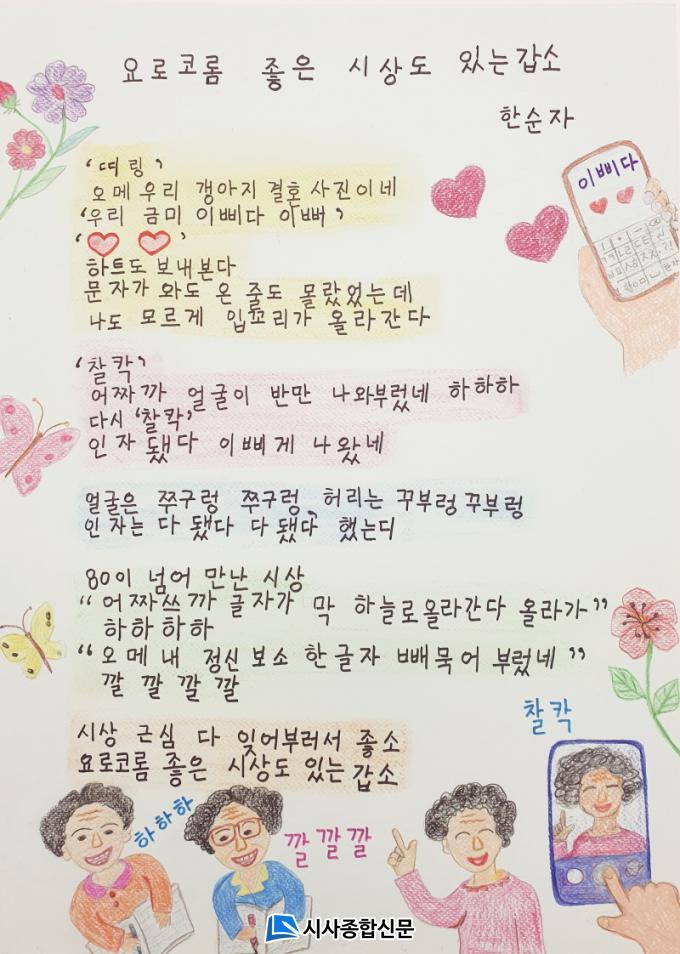 요로코롬 좋은 시상도 있는갑소
한순자
'띠링'
오메 우리 갱아지 결혼사진이네
'우리 금미 이삐다 이뻐'
'♥ ♥'
하트도 보내본다
문자가 와도 온 줄도 몰랐었는데
나도 모르게 입꼬리가 올라간다
'찰칵'
어짜까 얼굴이 반만 나와부렀네 하하하
다시 '찰칵'
인자 됐다 이삐게 나왔네
얼굴은 쭈구렁 쭈구렁, 허리는 꾸부렁꾸부렁
인자는 다 됐다 다 됐다 했는디
80이 넘어 만난 시상
"어짜쓰까 글자가 막 하늘로올라간다 올라가"
하하하하
"오메내 정신보소 한글자 빼묵어 부렀네"
깔 깔 깔 깔
시상 근심 다 잊어부러서 좋소
요로코롬 좋은 시상도 있는갑소
이삐다
찰칵
하하하
깔깔깔
시사종합신문